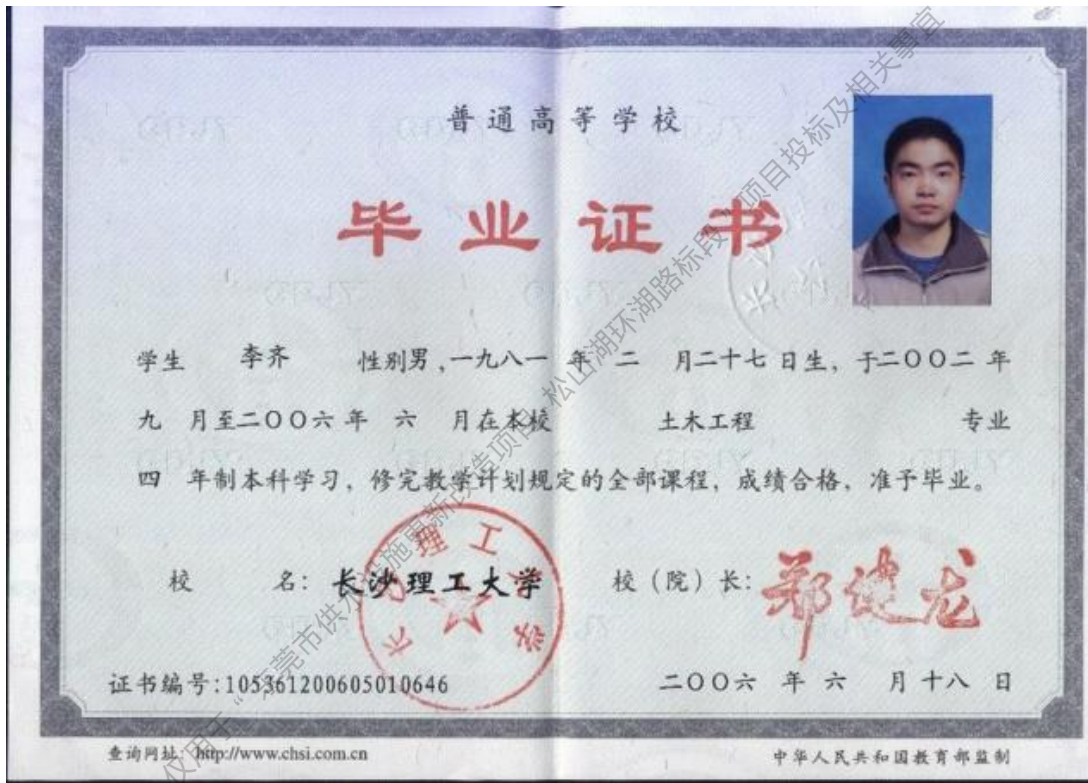 普通高等学校
毕业证书
学生 李齐 性别男,一九八一 年 二 月二十七 日生, 于二〇〇二 年
九 月至二〇〇六 年 六 月在本校 土木工程 专业
四 年制本科学习, 修完教学计划规定的全部课程, 成绩合格, 准予毕业。
校 名: 长沙理工大学
校（院）长: 郑健龙
证书编号:105361200605010646
二〇〇六 年 六 月十八 日
查询网址: http://www.chsi.com.cn
中华人民共和国教育部监制
长沙理工大学